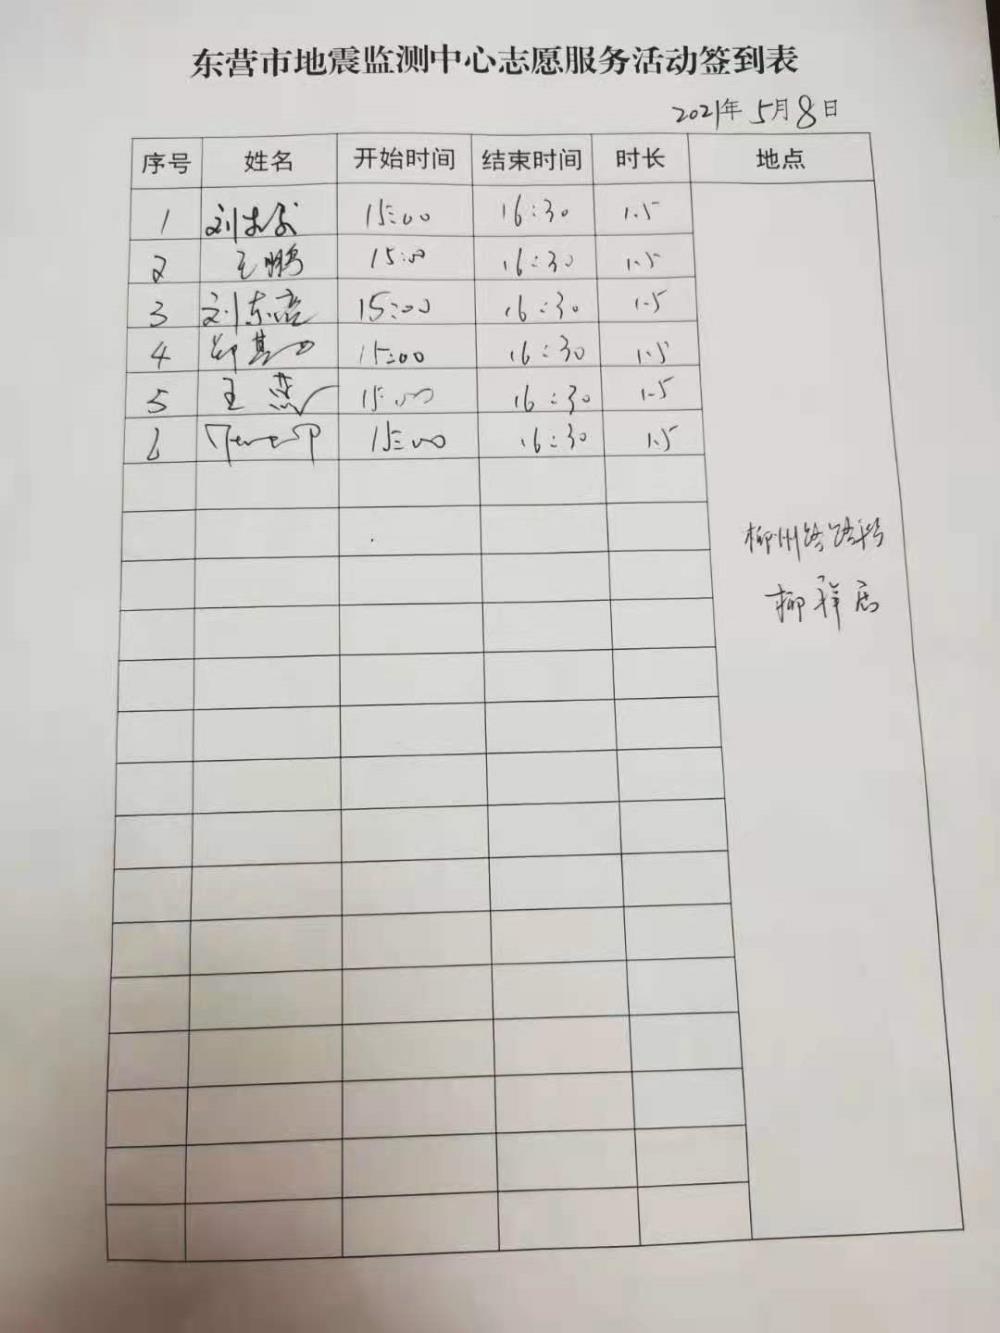 东营市地震监测中心志愿服务活动签到表
2021年5月8日
序号 姓名 开始时间 结束时间 时长 地点
1 15:00 16:30 1.5
2 王鹏 15:00 16:30 1.5
3 刘东 15:00 16:30 1.5
4 15:00 16:30 1.5
5 王燕 15:00 16:30 1.5
6 15:00 16:30 1.5
柳州路路段
柳祥居